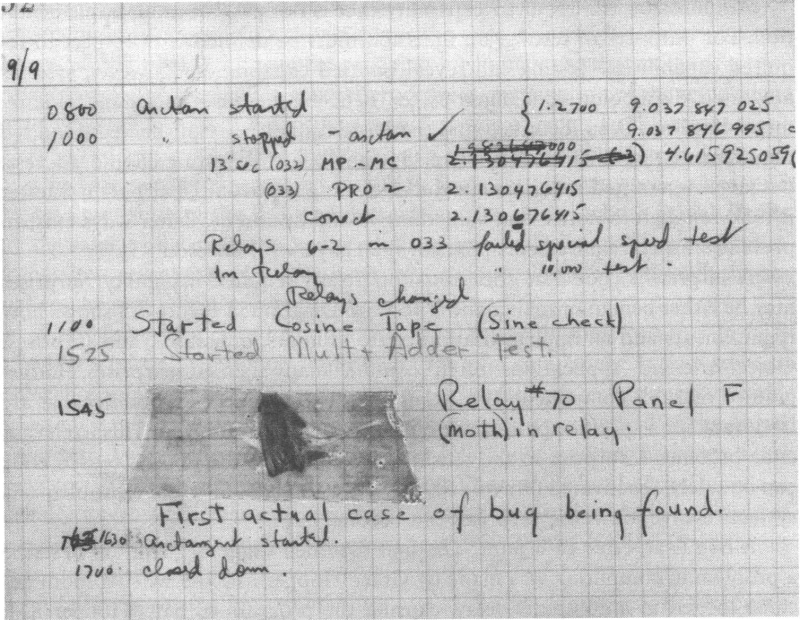 9/9
0800 arctan started { 1.2700 9.037 847 025
1000 " stopped - arctan ✓ 9.037 846 995
13"uc (032) MP - MC 2.130476415 4.615925059(
(033) PRO 2 2.130476415
conect 2.130676415
Relays 6-2 in 033 failed special speed test
In Relay " 10,000 test .
Relays changed
1100 Started Cosine Tape (Sine check)
1525 Started Mult + Adder Test.
1545 Relay #70 Panel F
(moth) in relay.
First actual case of bug being found.
1630 arctangent started.
1700 closed down .